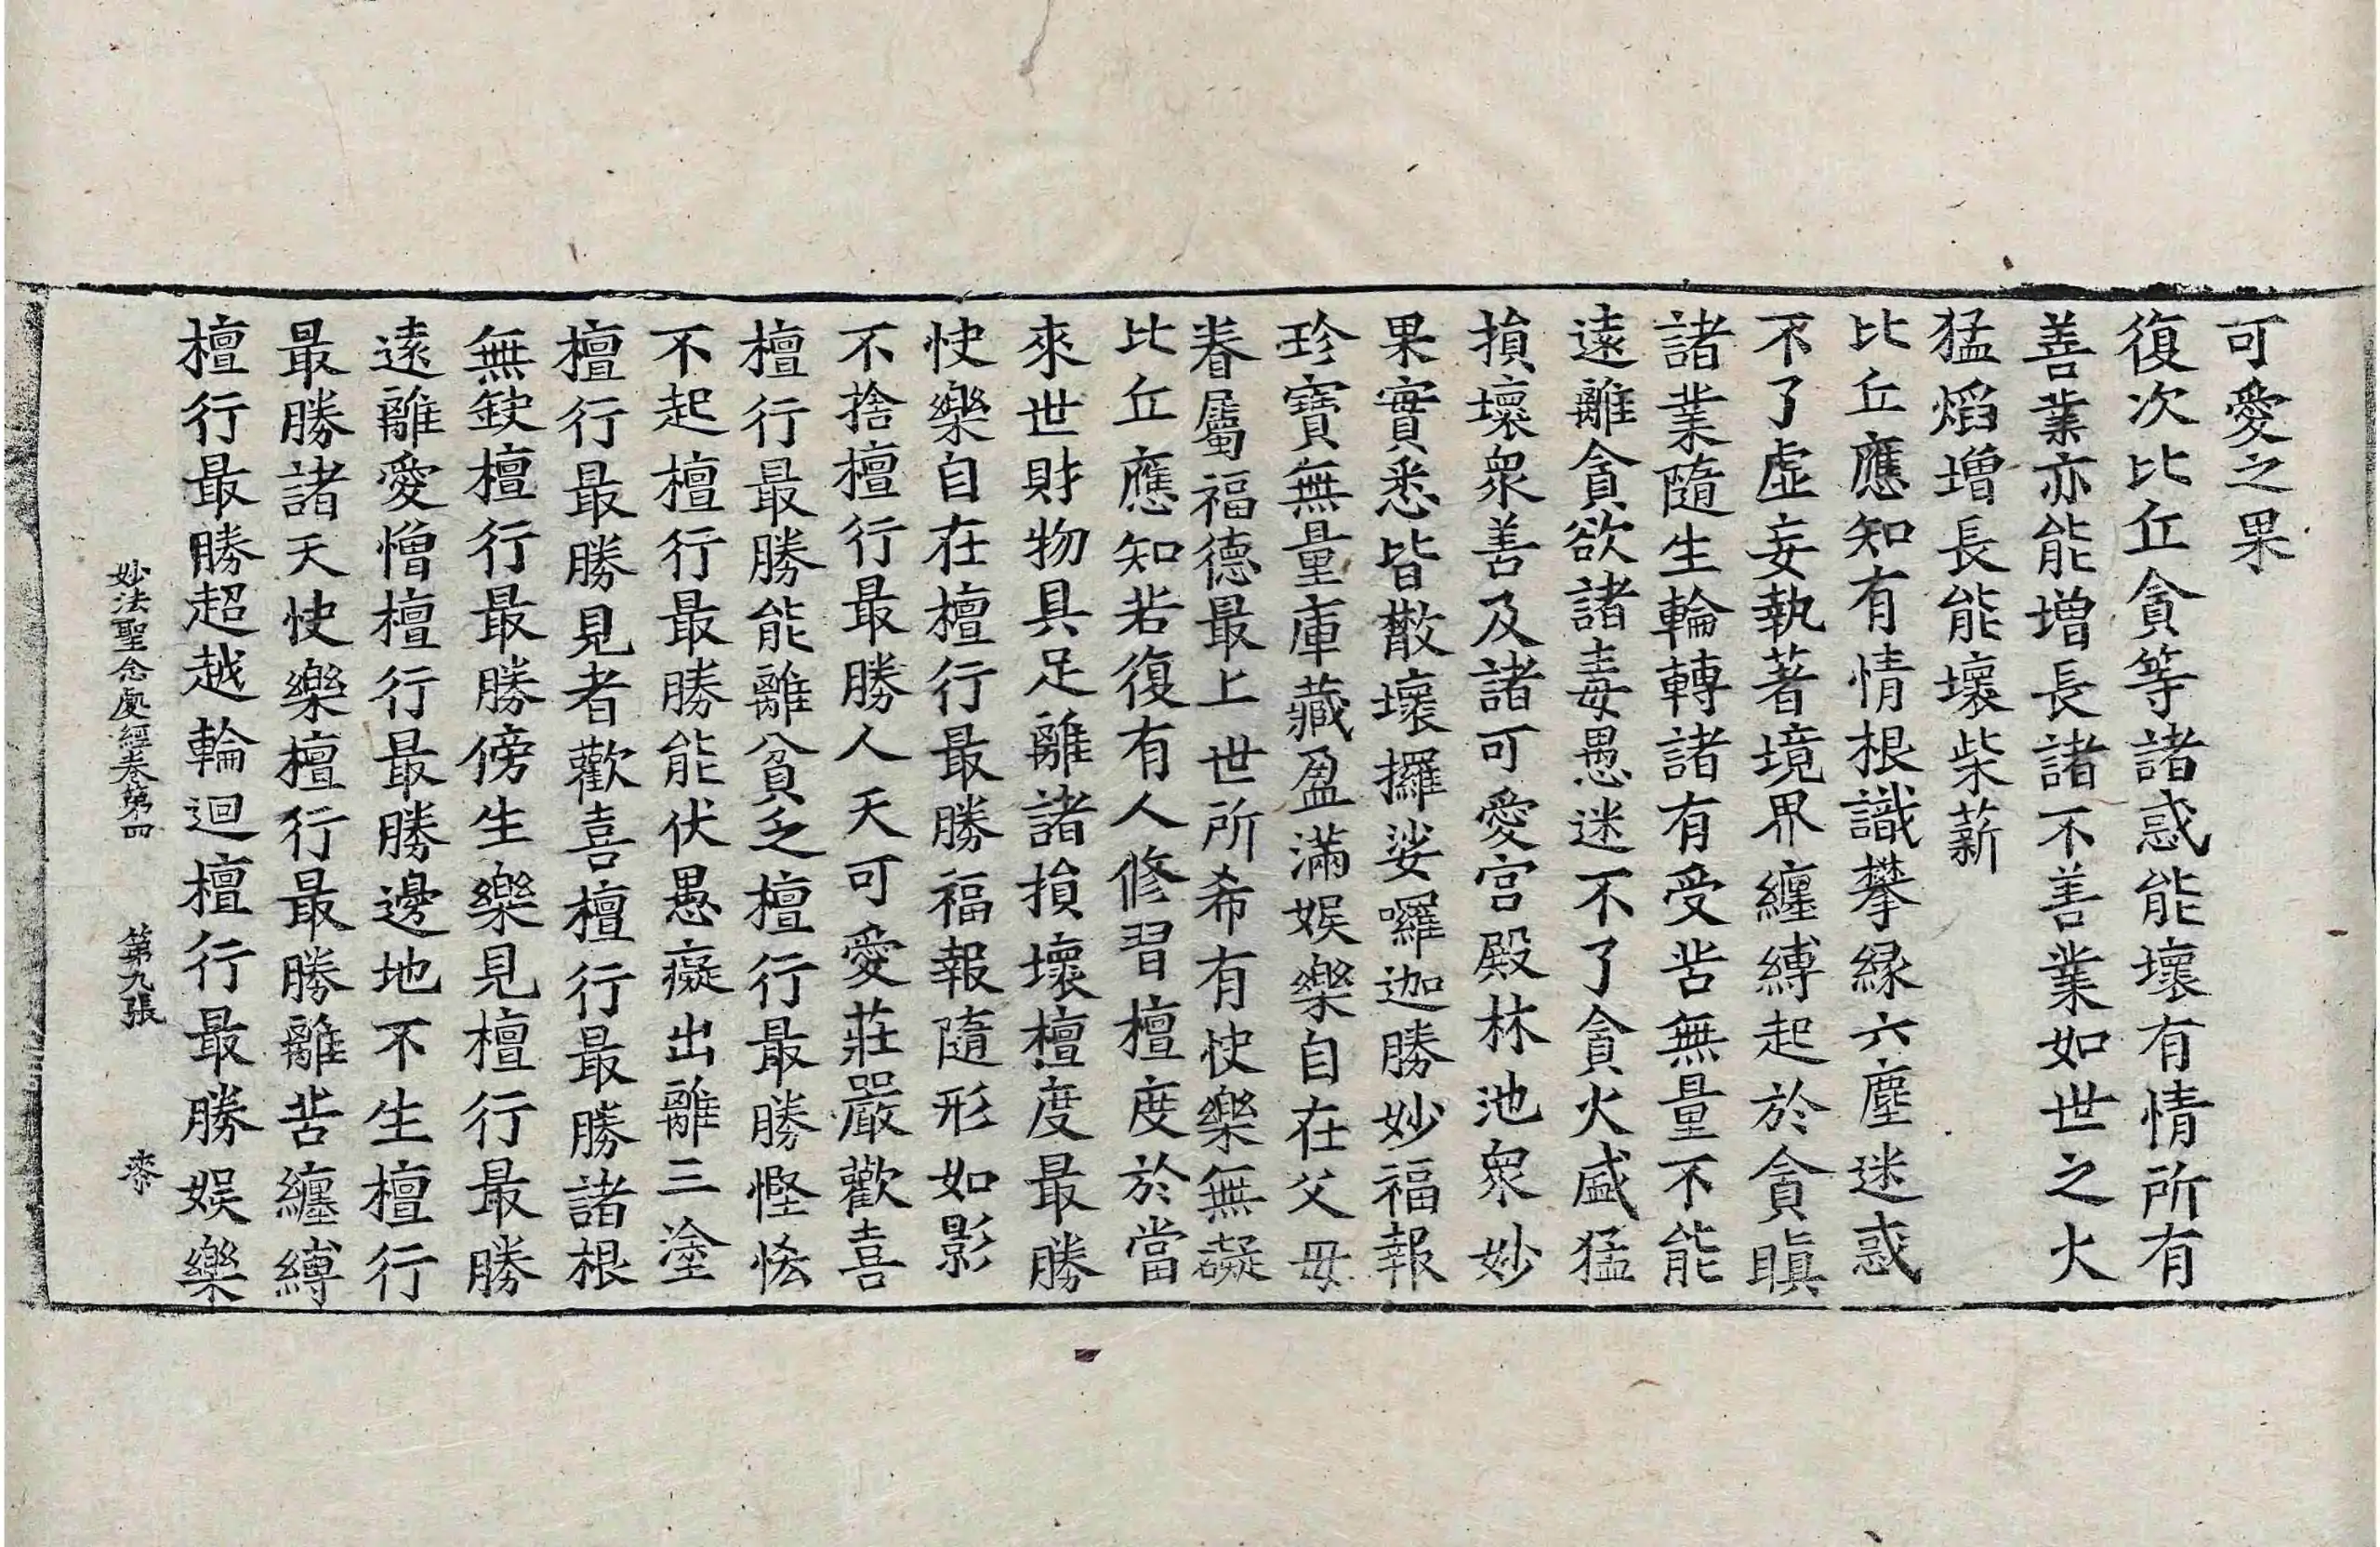 可愛之果
復次比丘貪等諸惑能壞有情所有
善業亦能增長諸不善業如世之火
猛焰增長能壞柴薪
比丘應知有情根識攀緣六塵迷惑
不了虛妄執著境界纏縛起於貪瞋
諸業隨生輪轉諸有受苦無量不能
遠離貪欲諸毒愚迷不了貪火盛猛
損壞衆善及諸可愛宮殿林池衆妙
果實悉皆散壞攞娑囉迦勝妙福報
珍寶無量庫藏盈滿娛樂自在父母
眷屬福德最上世所希有快樂無礙
比丘應知若復有人修習檀度於當
來世財物具足離諸損壞檀度最勝
快樂自在檀行最勝福報隨形如影
不捨檀行最勝人天可愛莊嚴歡喜
檀行最勝能離貧乏檀行最勝慳悋
不起檀行最勝能伏愚癡出離三塗
檀行最勝見者歡喜檀行最勝諸根
無缺檀行最勝傍生樂見檀行最勝
遠離愛憎檀行最勝邊地不生檀行
最勝諸天快樂檀行最勝離苦纏縛
檀行最勝超越輪迴檀行最勝娛樂
妙法聖念處經卷第四 第九張 柰